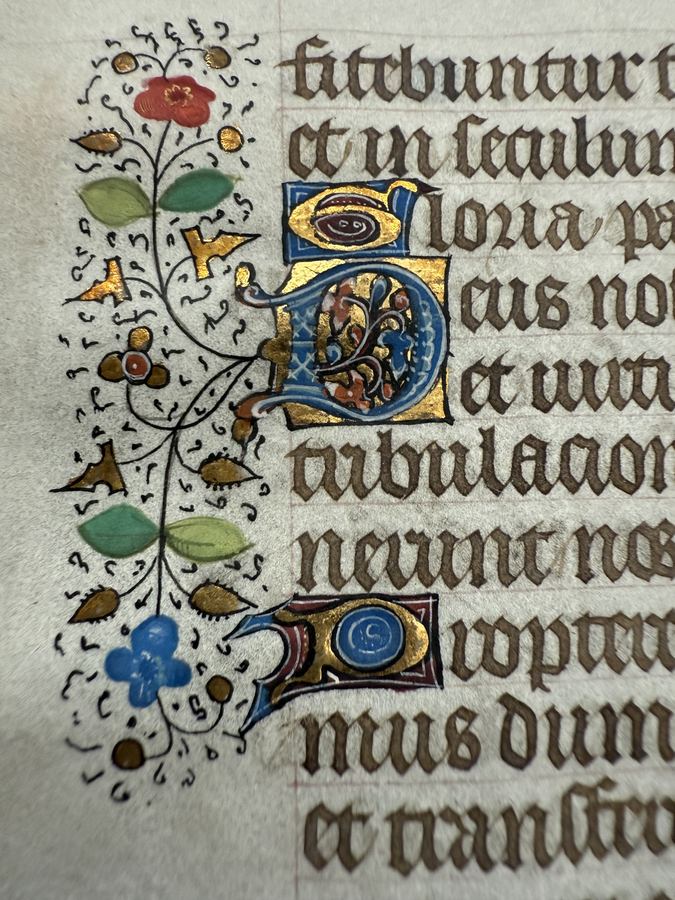 fitebuntur t
et in seculum
Gloria pa
Deus nos
et uirtu
tribulacion
nerunt nos
Propterea
mus dum
et transfer